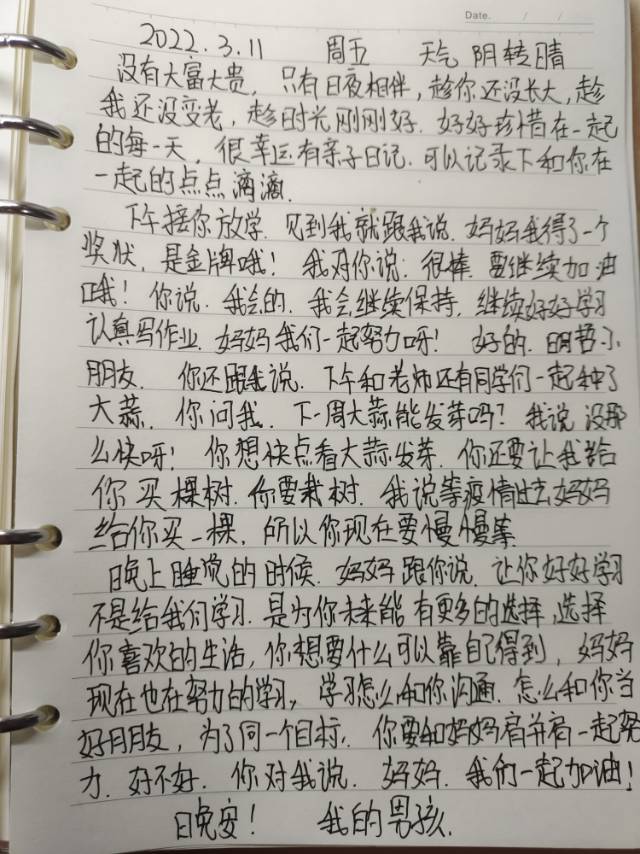 Date. / /
2022.3.11 周五 天气 阴转晴
没有大富大贵, 只有日夜相伴, 趁你还没长大, 趁
我还没变老, 趁时光刚刚好. 好好珍惜在一起
的每一天, 很幸运有亲子日记. 可以记录下和你在
一起的点点滴滴.
下午接你放学. 见到我就跟我说. 妈妈我得了一个
奖状, 是金牌哦! 我对你说: 很棒. 要继续加油
哦! 你说. 我会的. 我会继续保持, 继续好好学习
认真写作业. 妈妈我们一起努力呀! 好的. 明哲小
朋友. 你还跟我说. 下午和老师还有同学们一起种了
大蒜. 你问我. 下一周大蒜能发芽吗? 我说 没那
么快呀! 你想快点看大蒜发芽. 你还要让我给
你买棵树. 你要栽树. 我说等疫情过去妈妈
给你买一棵, 所以你现在要慢慢等
晚上睡觉的时候. 妈妈跟你说. 让你好好学习
不是给我们学习. 是为你未来能有更多的选择, 选择
你喜欢的生活, 你想要什么可以靠自己得到, 妈妈
现在也在努力的学习, 学习怎么和你沟通. 怎么和你当
好朋友, 为了同一个目标. 你要和妈妈肩并肩一起努
力. 好不好. 你对我说. 妈妈. 我们一起加油!
晚安! 我的男孩.